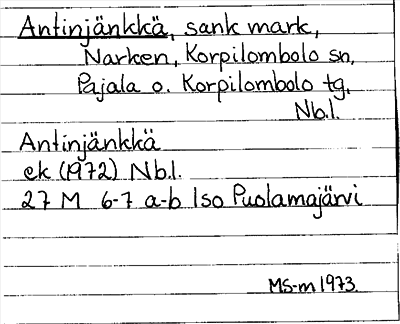 Antinjänkkä, sank mark,
Narken, Korpilombolo sn,
Pajala o. Korpilombolo tg,
Nb.l.
Antinjänkkä
ek (1972) Nb.l.
27 M 6-7 a-b Iso Puolamajärvi
MS-m 1973